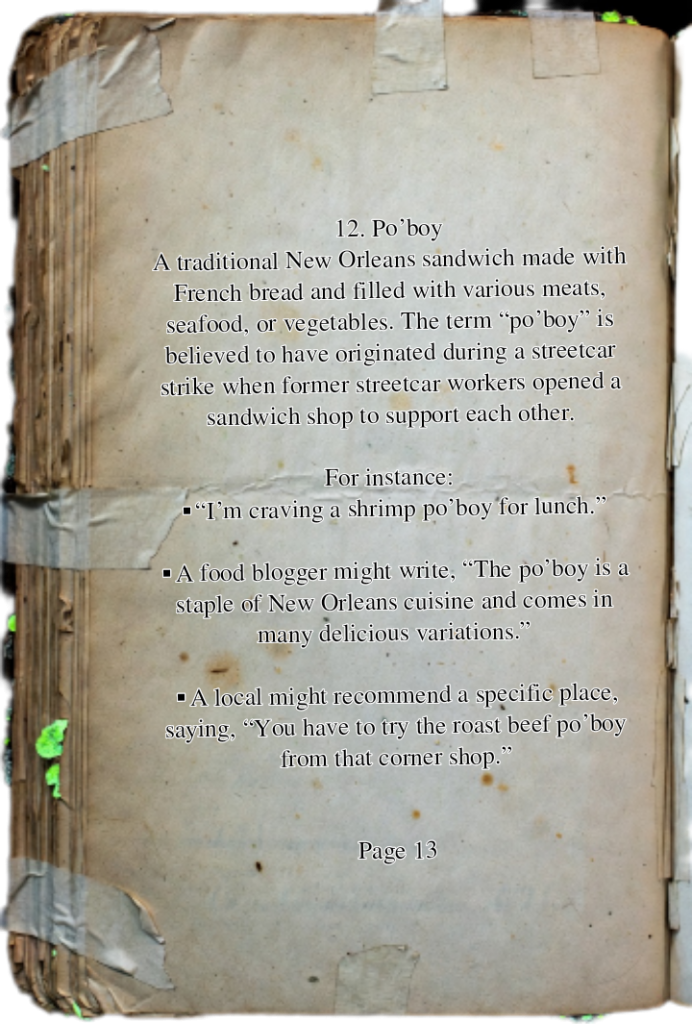 12. Po’boy
A traditional New Orleans sandwich made with
French bread and filled with various meats,
seafood, or vegetables. The term “po’boy” is
believed to have originated during a streetcar
strike when former streetcar workers opened a
sandwich shop to support each other.
For instance:
▪“I’m craving a shrimp po’boy for lunch.”
▪A food blogger might write, “The po’boy is a
staple of New Orleans cuisine and comes in
many delicious variations.”
▪A local might recommend a specific place,
saying, “You have to try the roast beef po’boy
from that corner shop.”
Page 13